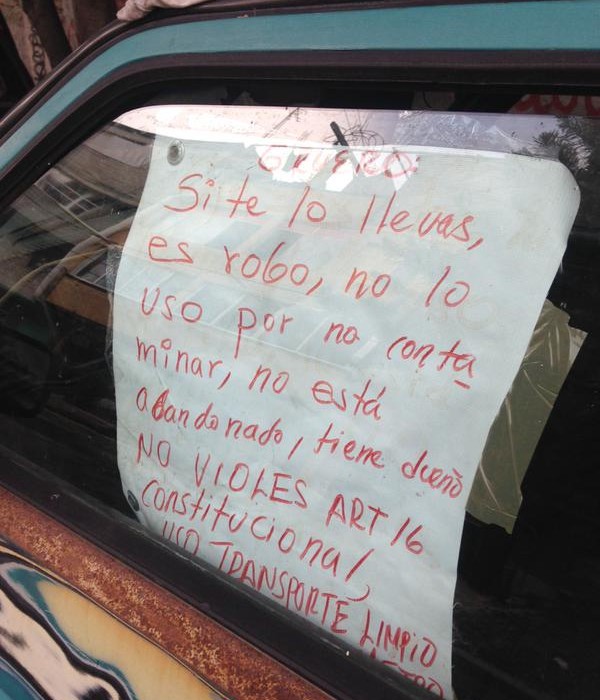 GRUERO:
Si te lo llevas,
es robo, no lo
uso por no conta
minar, no está
abandonado, tiene dueño
NO VIOLES ART 16
constitucional,
USO TRANSPORTE LIMPIO